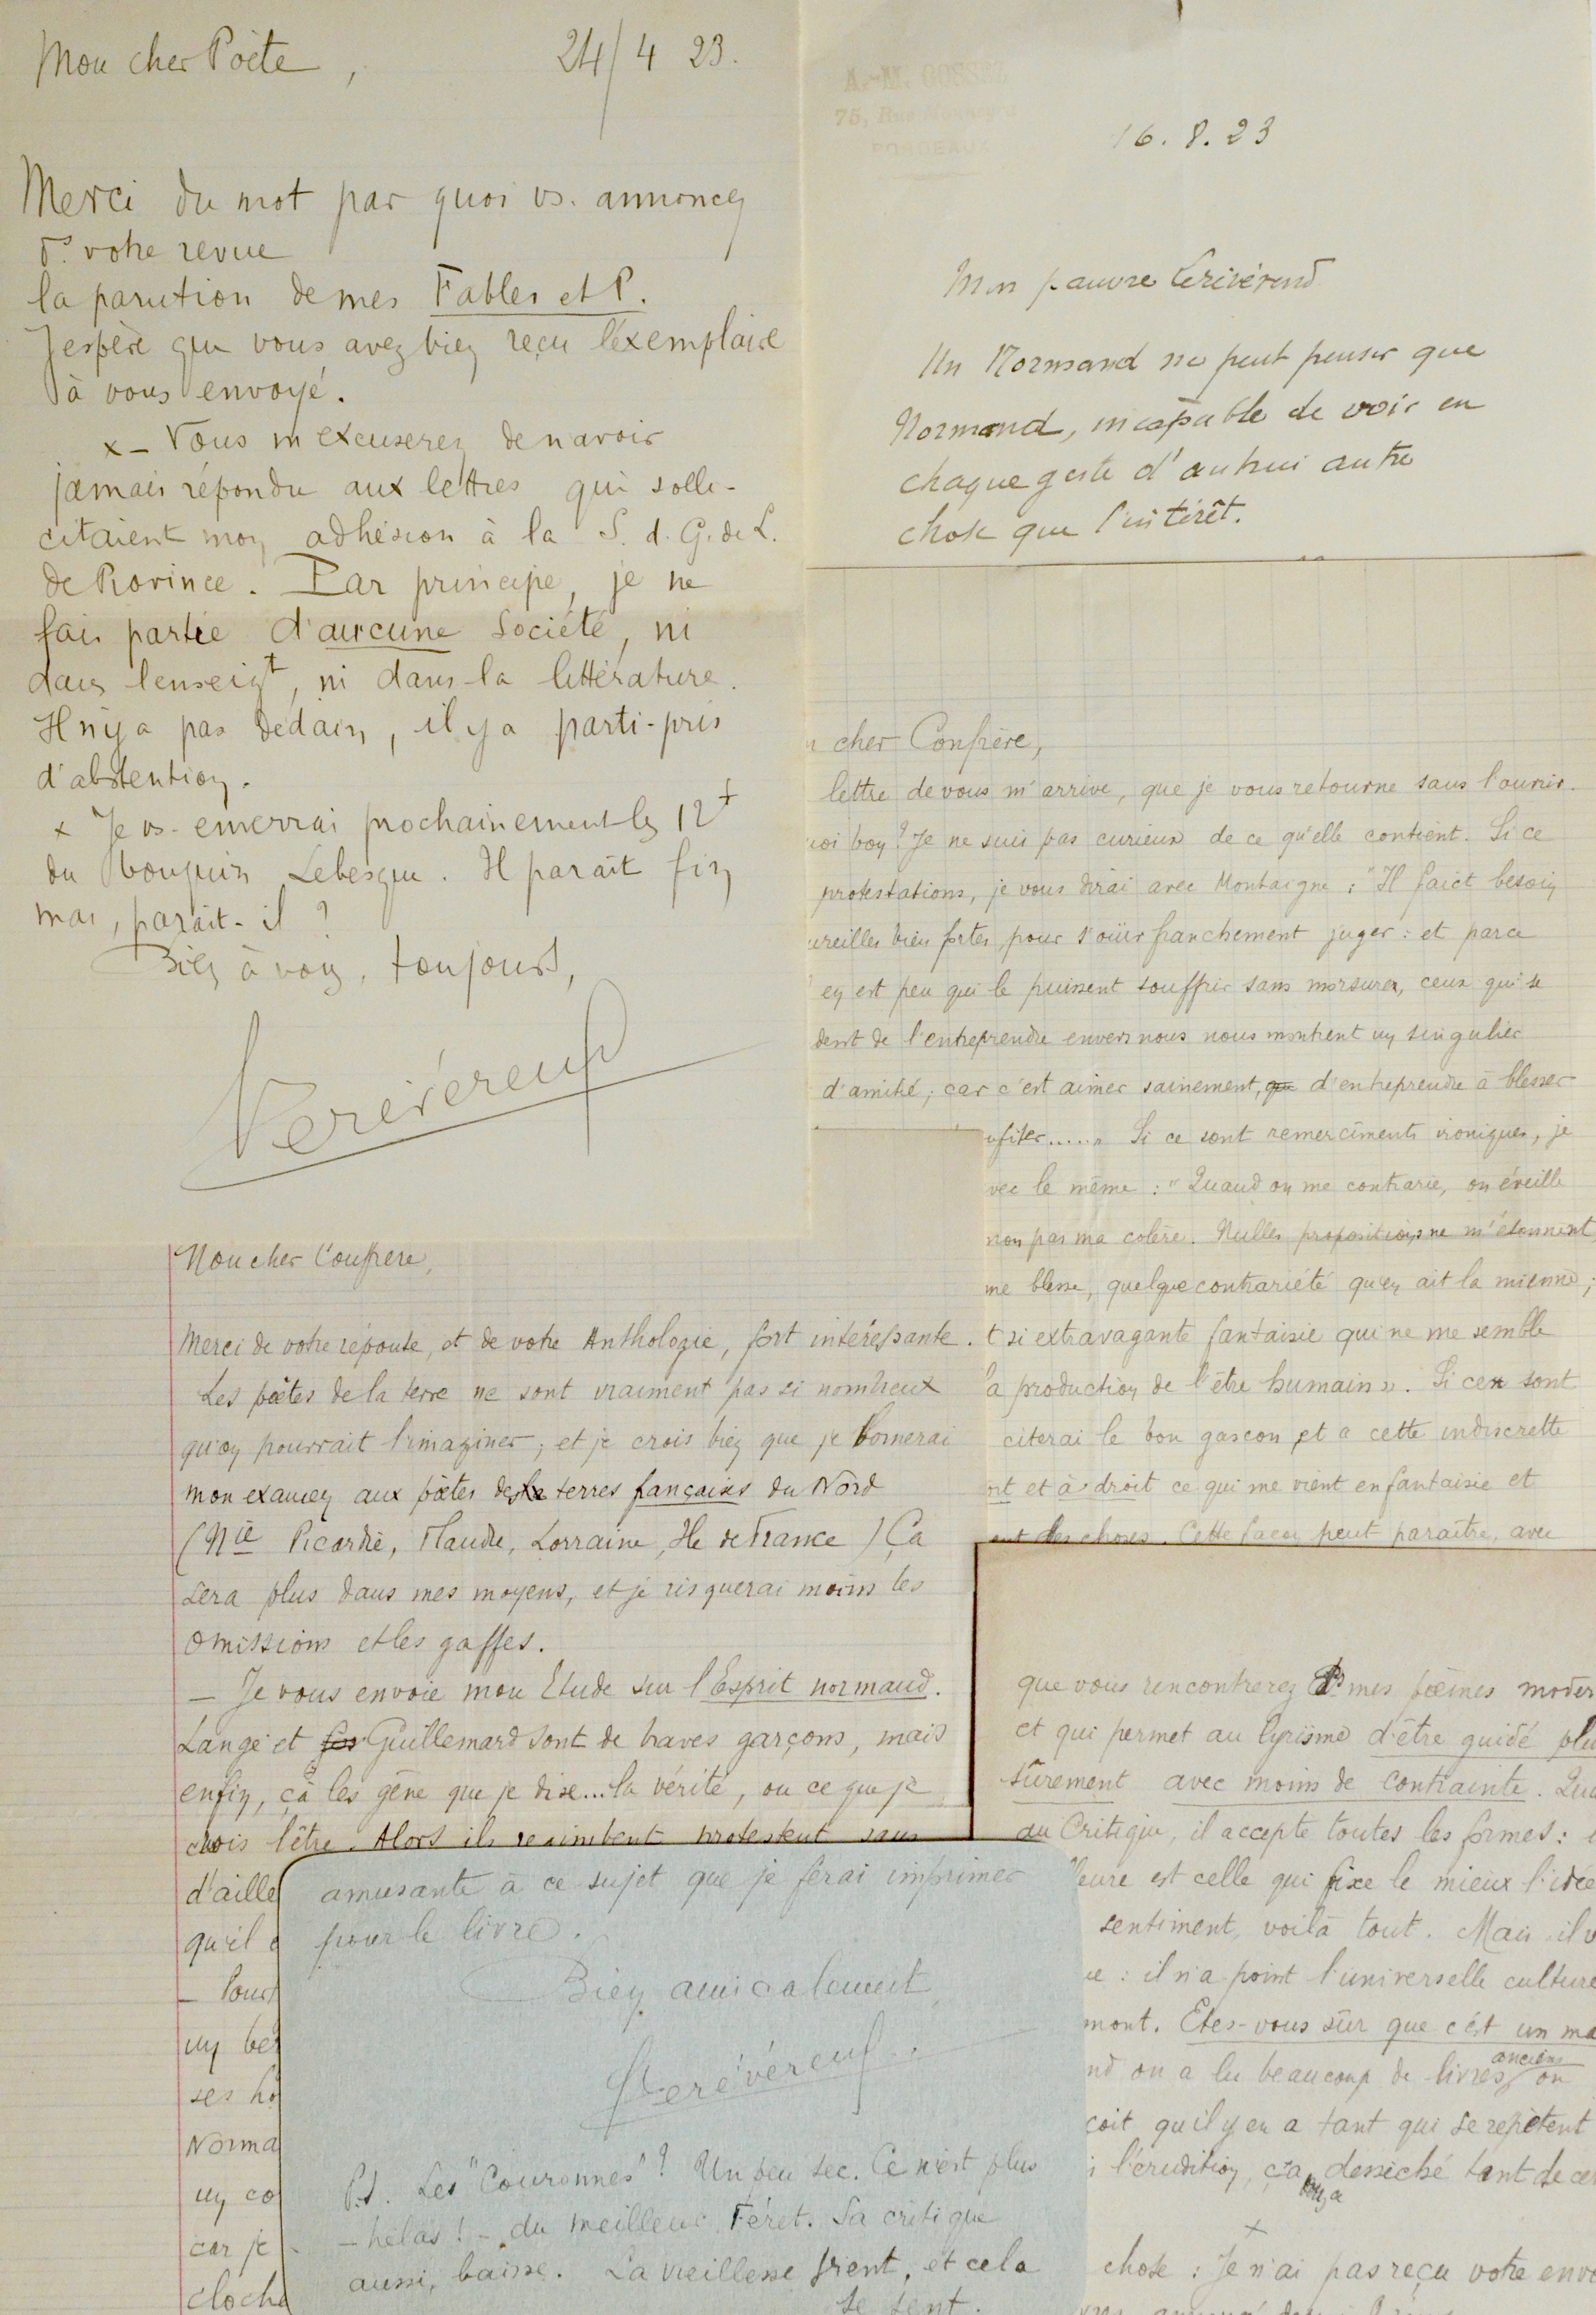 Mon cher Poète, 24/4 23.
Merci du mot par quoi vs. annoncez
ds. votre revue
la parution de mes Fables et P.
J'espère que vous avez bien reçu l'exemplaire
à vous envoyé.
x – Vous m'excuserez de n'avoir
jamais répondu aux lettres qui solli-
citaient mon adhésion à la S. d. G. de L.
de Province. Par principe, je ne
fais partie d'aucune Société, ni
dans l'enseigt, ni dans la littérature.
Il n'y a pas dédain, il y a parti-pris
d'abstention.
x Je vs. enverrai prochainement les 12 f
du bouquin Lebesgue. Il paraît fin
mai, paraît-il ?
Bien à vous, toujours,
Lerévérend
A.-M. GOSSEZ
75, Rue
BORDEAUX
16. 8. 23
Mon pauvre Lerévérend
Un Normand ne peut penser que
Normand, incapable de voir en
chaque geste d'autrui autre
chose que l'intérêt.
cher Confrère,
lettre de vous m'arrive, que je vous retourne sans l'ouvrir.
quoi bon ? Je ne suis pas curieux de ce qu'elle contient. Si ce
protestations, je vous dirai avec Montaigne : "Il faict besoin
ureilles bien fortes pour s'ouïr franchement juger : et parce
en est peu qui le puissent souffrir sans morsures, ceux qui se
dent de l'entreprendre envers nous nous montrent un singulier
d'amitié ; car c'est aimer sainement, que d'entreprendre à blesser
ofiter....." Si ce sont remerciments ironiques, je
vec le même : "Quand on me contrarie, on éveille
non pas ma colère. Nulles propositions ne m'étonnent
me blesse, quelque contrariété qu'en ait la mienne ;
t si extravagante fantaisie qui ne me semble
la production de l'être humain". Si ce sont
citerai le bon gascon et a cette indiscrette
ort et à droit ce qui me vient en fantaisie et
ent des choses. Cette façon peut paraître, avec
Mon cher Confrère,
Merci de votre réponse, et de votre Anthologie, fort intéressante.
Les poètes de la terre ne sont vraiment pas si nombreux
qu'on pourrait l'imaginer ; et je crois bien que je bornerai
mon examen aux poètes des terres françaises du Nord
(Nie Picardie, Flandre, Lorraine, Ile de France) Ça
sera plus dans mes moyens, et je risquerai moins les
omissions et les gaffes.
– Je vous envoie mon Etude sur l'Esprit normand.
Langé et Guillemard sont de braves garçons, mais
enfin, ça les gêne que je dise... la vérité, ou ce que je
crois l'être. Alors ils regimbent protestent sans
d'aille
qu'il
–
un be
ses ho
Norma
un co
car je
cloche
que vous rencontrerez ds mes poèmes moder
et qui permet au lyrisme d'être guidé plu
sûrement avec moins de contrainte. Qua
au Critique, il accepte toutes les formes :
leure est celle qui fixe le mieux l'idée
sentiment, voilà tout. Mais il v
ue : il n'a point l'universelle culture
mont. Etes-vous sûr que c'est un ma
nd on a lu beaucoup de livres anciens on
çoit qu'il y en a tant qui se répètent
i l'érudition, ça a desséché tant de ce
x
chose : Je n'ai pas reçu votre envo
amusante à ce sujet que je ferai imprimer
pour le livre.
Bien amicalement
Lerévérend.
P.S. Les "Couronnes" ? Un peu sec. Ce n'est plus
– hélas ! – du meilleur Féret. Sa critique
aussi, baisse. La vieillesse vient, et cela
se sent.